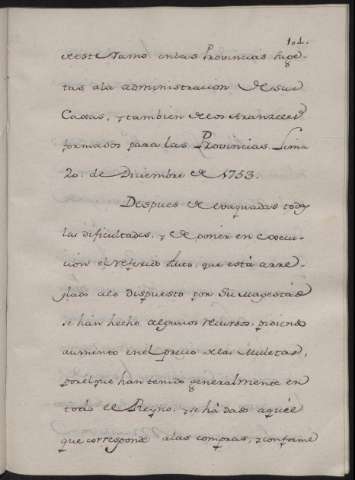 104.
de este Ramo en las Provincias suge-
tas a la administracion de sus
Caxas, y tambien de los Aranzeles
formados para las Provincias. Lima
20. de Diciembre de 1753.
Despues de evaquadas todas
las dificultades, y de poner en execu-
cion el referido Auto, que está arre-
glado a lo dispuesto por Su Magestad
se han hecho algunos recursos, pidiendo
aumento en el precio de las Muletas,
por el que han tenido generalmente en
todo el Reyno, y se há dado aquel
que corresponde a las compras, y conforme